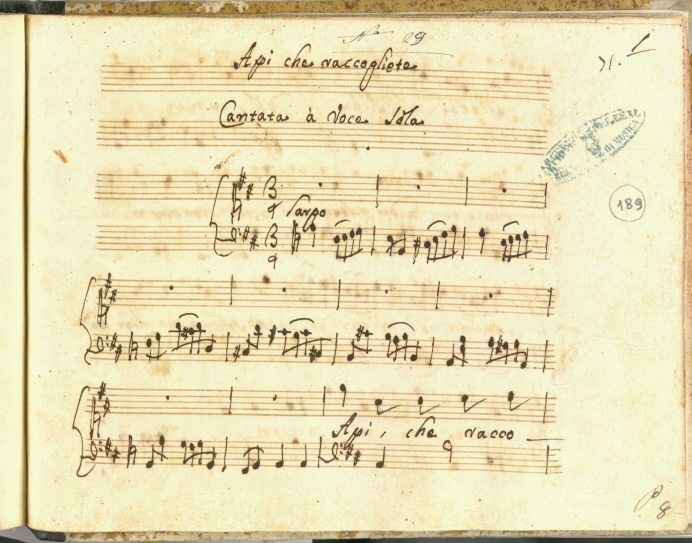 N.º 29
Api che raccogliete
Cantata à Voce Sola
189
3
4
Largo
3
4
Api, che racco
P. 8